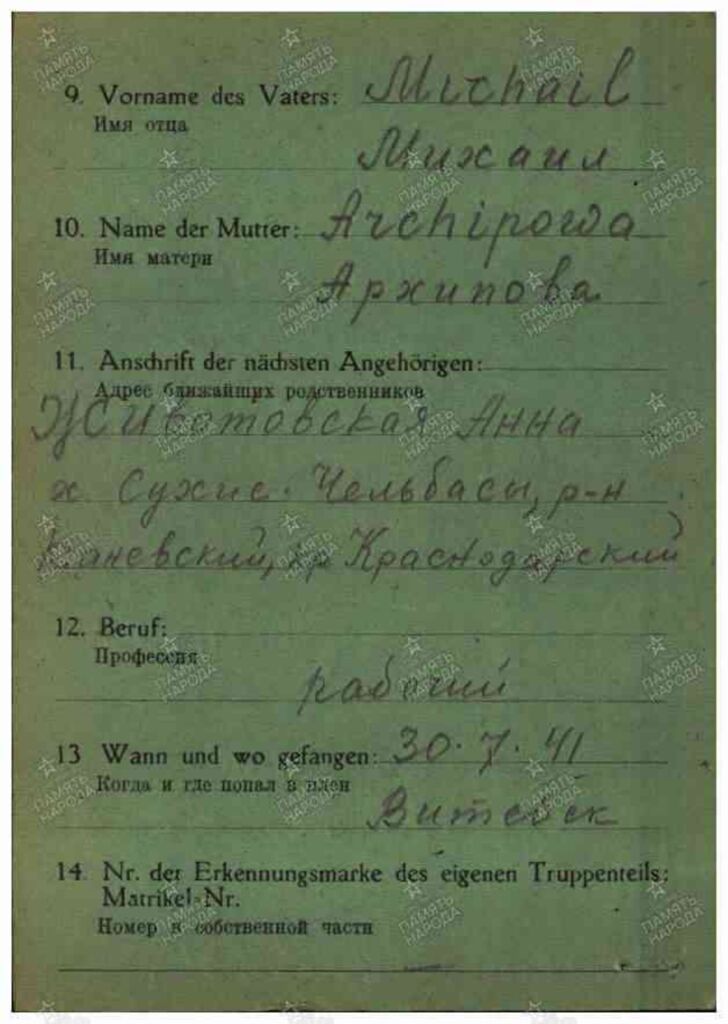 9. Vorname des Vaters: Michail
Имя отца
Михаил
10. Name der Mutter: Archipowa
Имя матери
Архипова
11. Anschrift der nächsten Angehörigen:
Адрес ближайших родственников
Животовская Анна
х. Сухие. Челбасы, р-н
Каневский, кр Краснодарский
12. Beruf:
Профессия
рабочий
13 Wann und wo gefangen: 30.7.41
Когда и где попал в плен
Витебск
14. Nr. der Erkennungsmarke des eigenen Truppenteils:
Matrikel-Nr.
Номер в собственной части
ПАМЯТЬ
НАРОДА